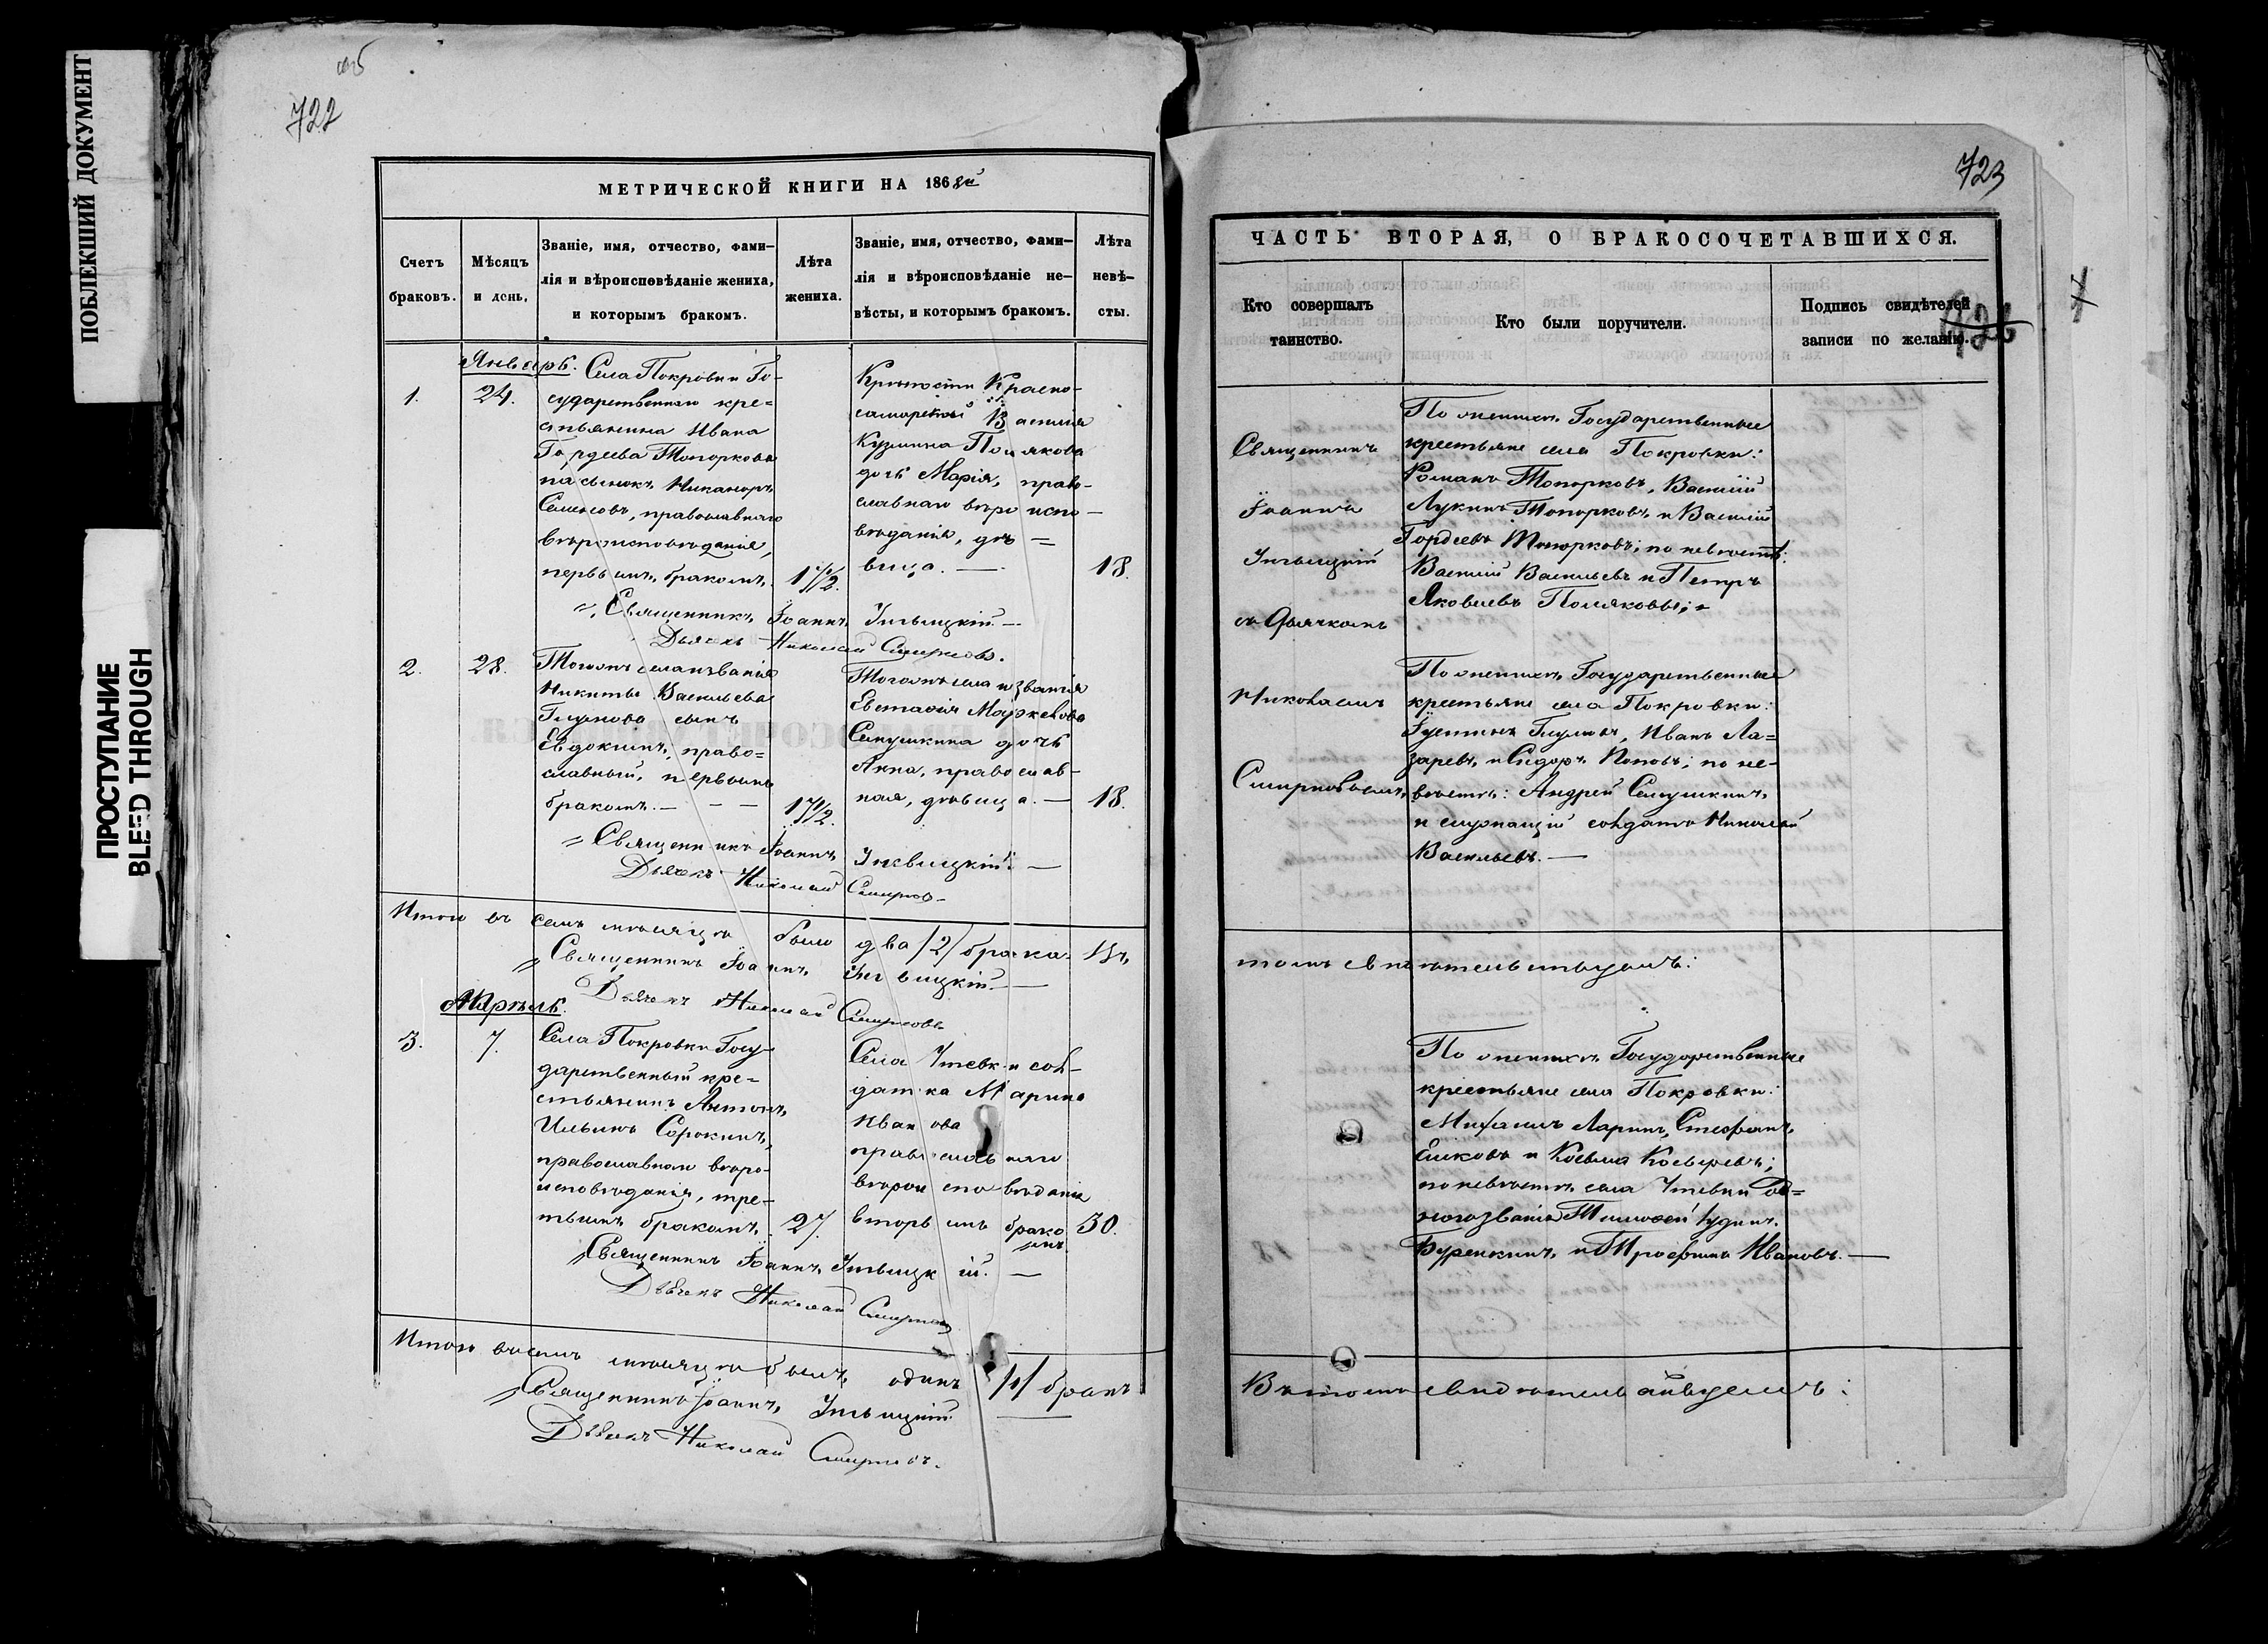 ПОБЛЕКШИЙ ДОКУМЕНТ
ПРОСТУПАНИЕ
BLEED THROUGH
722
МЕТРИЧЕСКОЙ КНИГИ НА 1868й
Счетъ браковъ.
Мѣсяцъ и день.
Званіе, имя, отчество, фами-
лія и вѣроисповѣданіе жениха,
и которымъ бракомъ.
Лѣта жениха.
Званіе, имя, отчество, фами-
лія и вѣроисповѣданіе не-
вѣсты, и которымъ бракомъ.
Лѣта невѣ-
сты.
Январь.
1.
24.
Села Покровки Го-
сударственнаго кре=
стьянина Ивана
Гордѣева Топоркова
пасынокъ Никаноръ
православнаго
вѣроисповѣданія,
первымъ бракомъ.
17 1/2.
Крѣпости Красно-
самарской Василія
Кузмина Полякова
дочь Марія, право-
славнаго вѣроиспо-
вѣданія, дѣ=
вица. —
18.
Священникъ Іоаннъ
Дьячекъ Николай Смирновъ.
2.
28.
Тогоже села и званія
Никиты Васильева
Глухова сынъ
Евдокимъ, право=
славный, первымъ
бракомъ. — — —
17 1/2.
Тогоже села и званія
Евстафія Маркелова
Сапушкина дочь
Анна, православ-
ная, дѣвица. —
18.
Священникъ Іоаннъ
Дьячекъ Николай Смирновъ
Итого въ семъ мѣсяцѣ было два /2/ брака. Въ
Священникъ Іоаннъ
Дьячекъ Николай Смирновъ
Апрѣль.
3.
7.
Села Покровки Госу-
дарственный кре=
стьянинъ Антонъ
Ильинъ Сорокинъ,
православнаго вѣро-
исповѣданія, тре-
тьимъ бракомъ.
27.
Села Утевки сол-
датка Марина
Иванова
православнаго
вѣроисповѣданія
вторымъ брако
мъ.
30.
Священникъ Іоаннъ
Дьячекъ Николай Смирновъ
Итого въ семъ мѣсяцѣ былъ одинъ /1/ бракъ
Священникъ Іоаннъ
Дьячекъ Николай Смирновъ.
723
ЧАСТЬ ВТОРАЯ, О БРАКОСОЧЕТАВШИХСЯ.
Кто совершалъ
таинство.
Кто были поручители.
Подпись свидѣтелей
записи по желанію.
Священникъ
Іоаннъ
съ дьячкомъ
Николаемъ
Смирновымъ
По женихѣ Государственные
крестьяне села Покровки:
Романъ Топорковъ, Василій
Лукинъ Топорковъ и Василій
Гордѣевъ Топорковъ; по невѣстѣ:
Василій Васильевъ и Петръ
Яковлевъ Поляковы;
По женихѣ Государственные
крестьяне села Покровки:
Іустинъ Глуховъ, Иванъ Ла=
заревъ и Сидоръ Поповъ; по не-
вѣстѣ: Андрей Сапушкинъ
и служащій солдатъ Николай
Васильевъ. —
томъ свидѣтельствуемъ:
По женихѣ Государственные
крестьяне села Покровки:
Михаилъ Ларинъ, Стефанъ
и Козьма
по невѣстѣ села Утевки
Тимофей Іудинъ
Буренкинъ и Трофимъ Ивановъ. —
Въ томъ свидѣтельствуемъ: